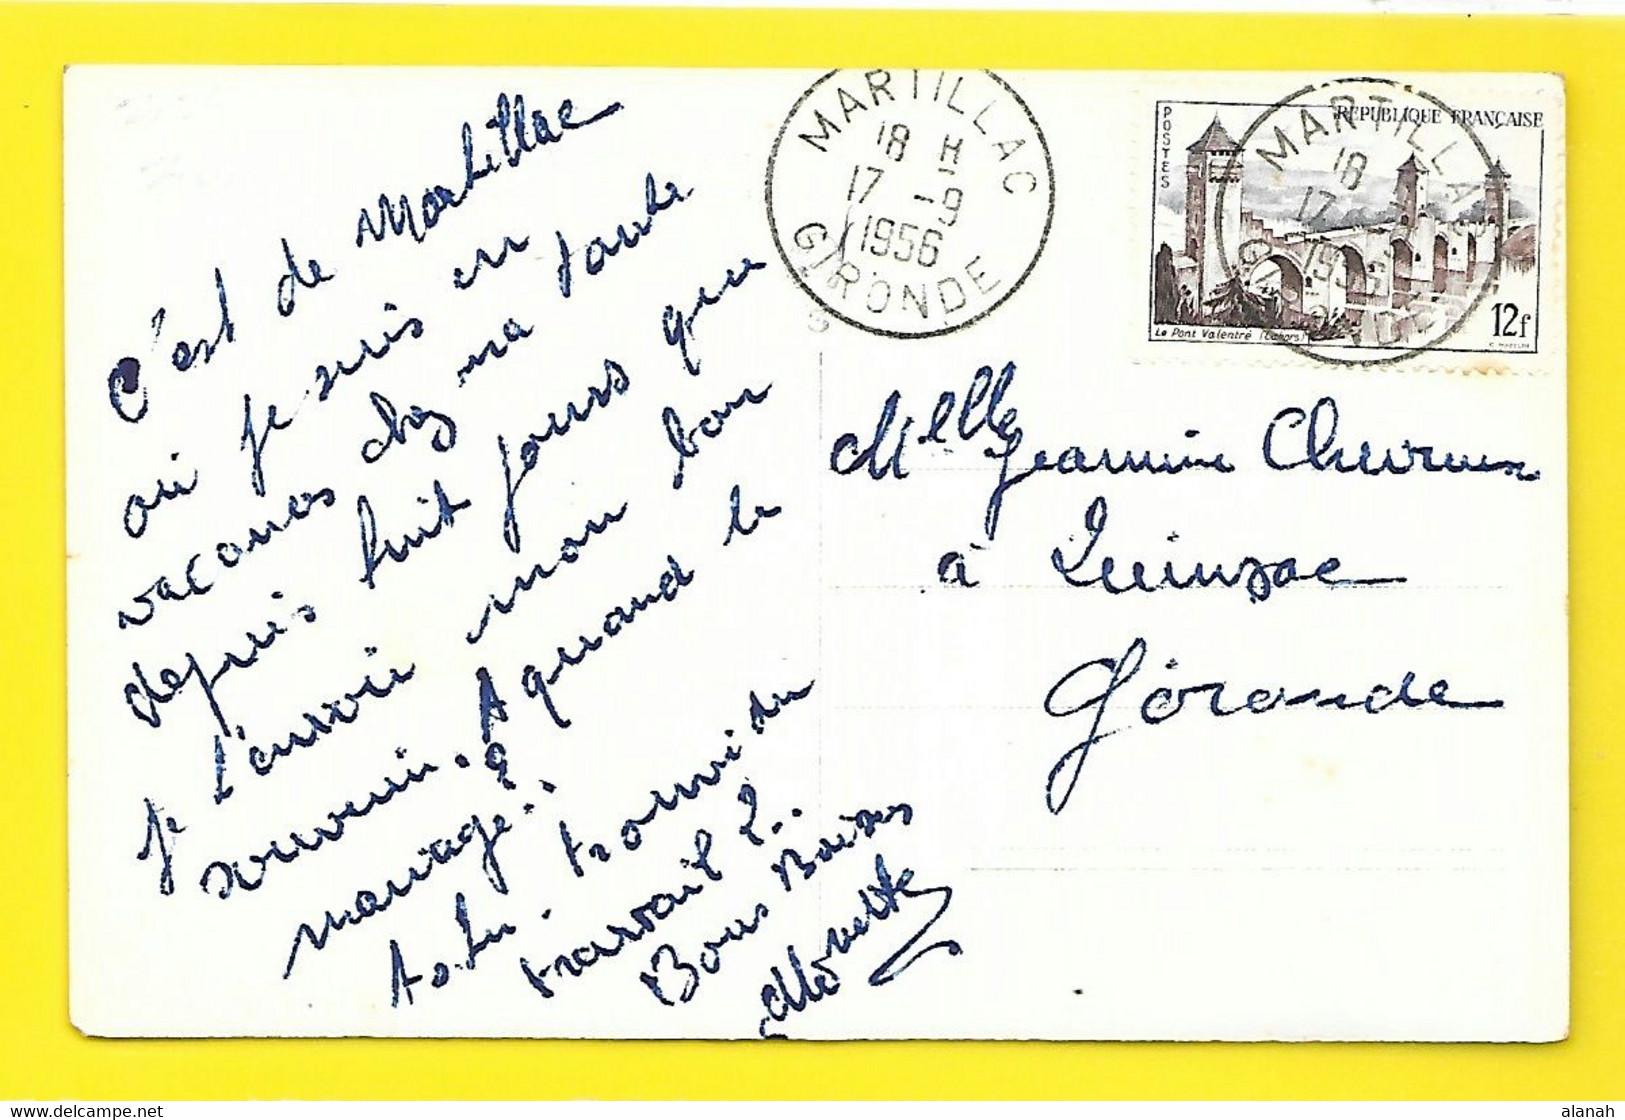 C'est de Martillac
où je suis en
vacances chez ma tante
depuis huit jours que
je t'envoie mon bon
souvenir. A quand le
mariage?..
As-tu trouvé du
travail?..
Bons Baisers
MARTILLAC
18 H
17 -9
1956
GIRONDE
POSTES
REPUBLIQUE FRANÇAISE
Le Pont Valentré (Cahors)
12f
MARTILLAC
18
17
1956
GIRONDE
Melle Jeannine
à Quinsac
Gironde
alanah